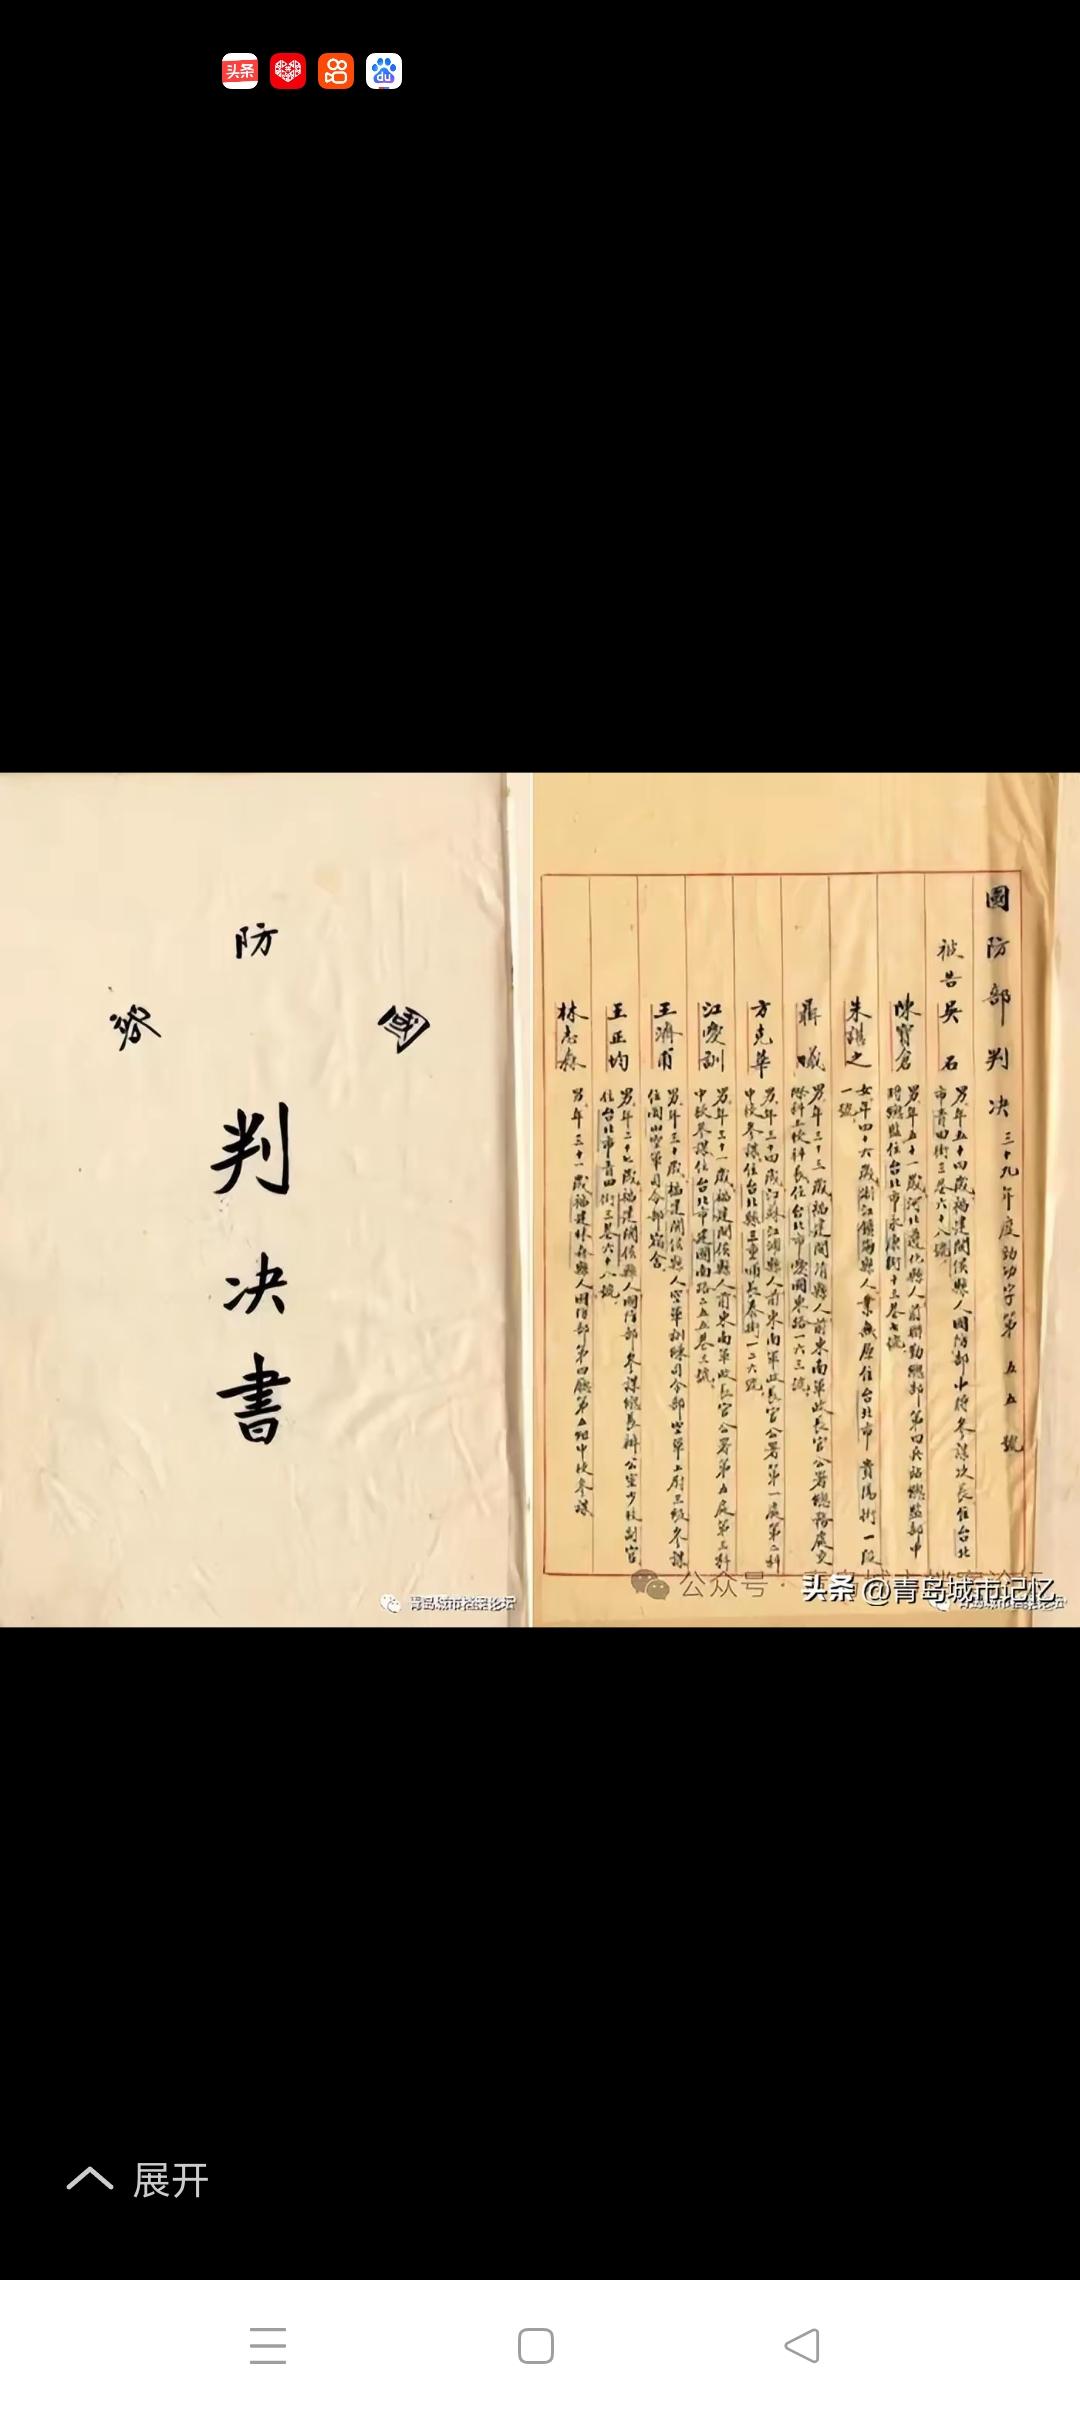 头条
du
國防部
判決書
國防部判決三十九年度勁功字第五五號
被告吳石 男年五十四歲福建閩侯縣人國防部中將參謀次長住台北
市青田街三巷六十八號
陳寶倉 男年五十一歲河北遵化縣人前聯勤總部第四兵站總監部中
將總監住台北市永康街十三巷七號
朱諶之 女年四十六歲浙江鎮海縣人業無原住台北市貴陽街一段
一號
聶曦 男年三十三歲福建閩清縣人前東南軍政長官公署總務處交
際科上校科長住台北市愛國東路一六三號
方克華 男年三十四歲江蘇江浦縣人前東南軍政長官公署第一處第二科
中校參謀住台北縣三重埔長泰街一二六號
江愛訓 男年三十一歲福建閩侯縣人前東南軍政長官公署第五處第三科
中校參謀住台北市建國南路二五五巷三號
王濟甫 男年三十歲福建閩侯縣人空軍訓練司令部空軍上尉三級參謀
住岡山空軍司令部宿舍
王正均 男年二十七歲福建閩侯縣人國防部參謀總長辦公室少校副官
住台北市青田街三巷六十八號
林志森 男年三十一歲福建林森縣人國防部第四廳第五組中校參謀
青岛城市档案论坛
公众号
头条 @青岛城市记忆
展开